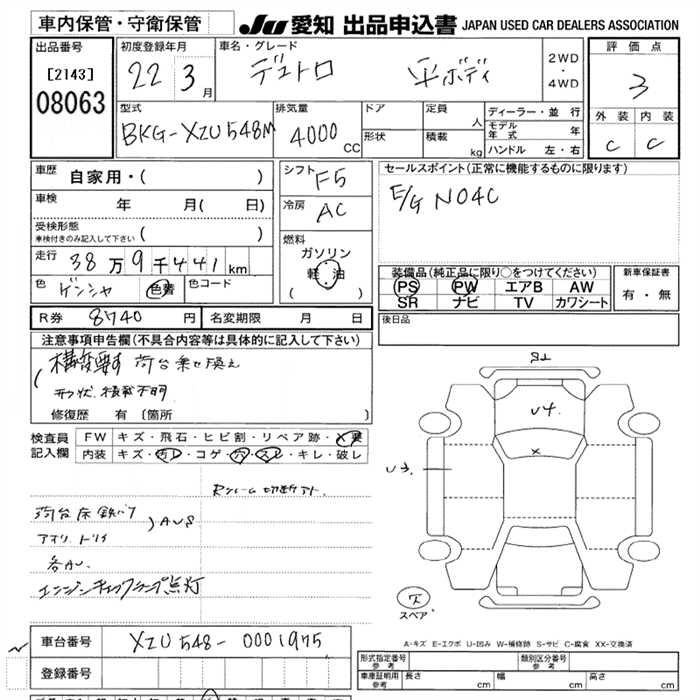 車内保管・守衛保管
JU 愛知 出品申込書 JAPAN USED CAR DEALERS ASSOCIATION
出品番号
[2143]
08063
初度登録年月
22 3月
車名・グレード
デュトロ 平ボディ
2WD・4WD
評価点
3
外装 内装
C C
型式
BKG-XZU548M
排気量
4000 CC
ドア
形状
定員 人
積載 kg
ディーラー・並行
モデル年式 年
ハンドル 左・右
車歴 自家用・( )
車検 年 月( 日)
受検形態
車検付きのみ記入して下さい ( )
走行 38万9千441km
色 ゲンシャ 色替 色コード
シフト F5
冷房 AC
燃料
ガソリン
軽・油
( )
セールスポイント(正常に機能するものに限ります)
E/G N04C
装備品(純正品に限り○をつけてください)
PS PW エアB AW
SR ナビ TV カワシート
新車保証書
有・無
R券 8740円 名変期限 月 日
後日品
注意事項申告欄(不具合内容等は具体的に記入して下さい)
構変要す 荷台乗せ換え
形状、積載不明
修復歴 有〔箇所 〕
検査員記入欄
FW キズ・飛石・ヒビ割・リペア跡・X要
内装 キズ・汚レ・コゲ・穴・スレ・キレ・破レ
荷台床鉄バタ
AUS
エンジンチェックランプ点灯
U4
U3
X
スペア
A-キズ E-エクボ U-凹み W-補修跡 S-サビ C-腐食 XX-交換済
車台番号 XZU548-0001975
登録番号
形式指定番号 参考
類別区分番号 参考
車庫証明用 参考 長さ cm 幅 cm 高さ cm